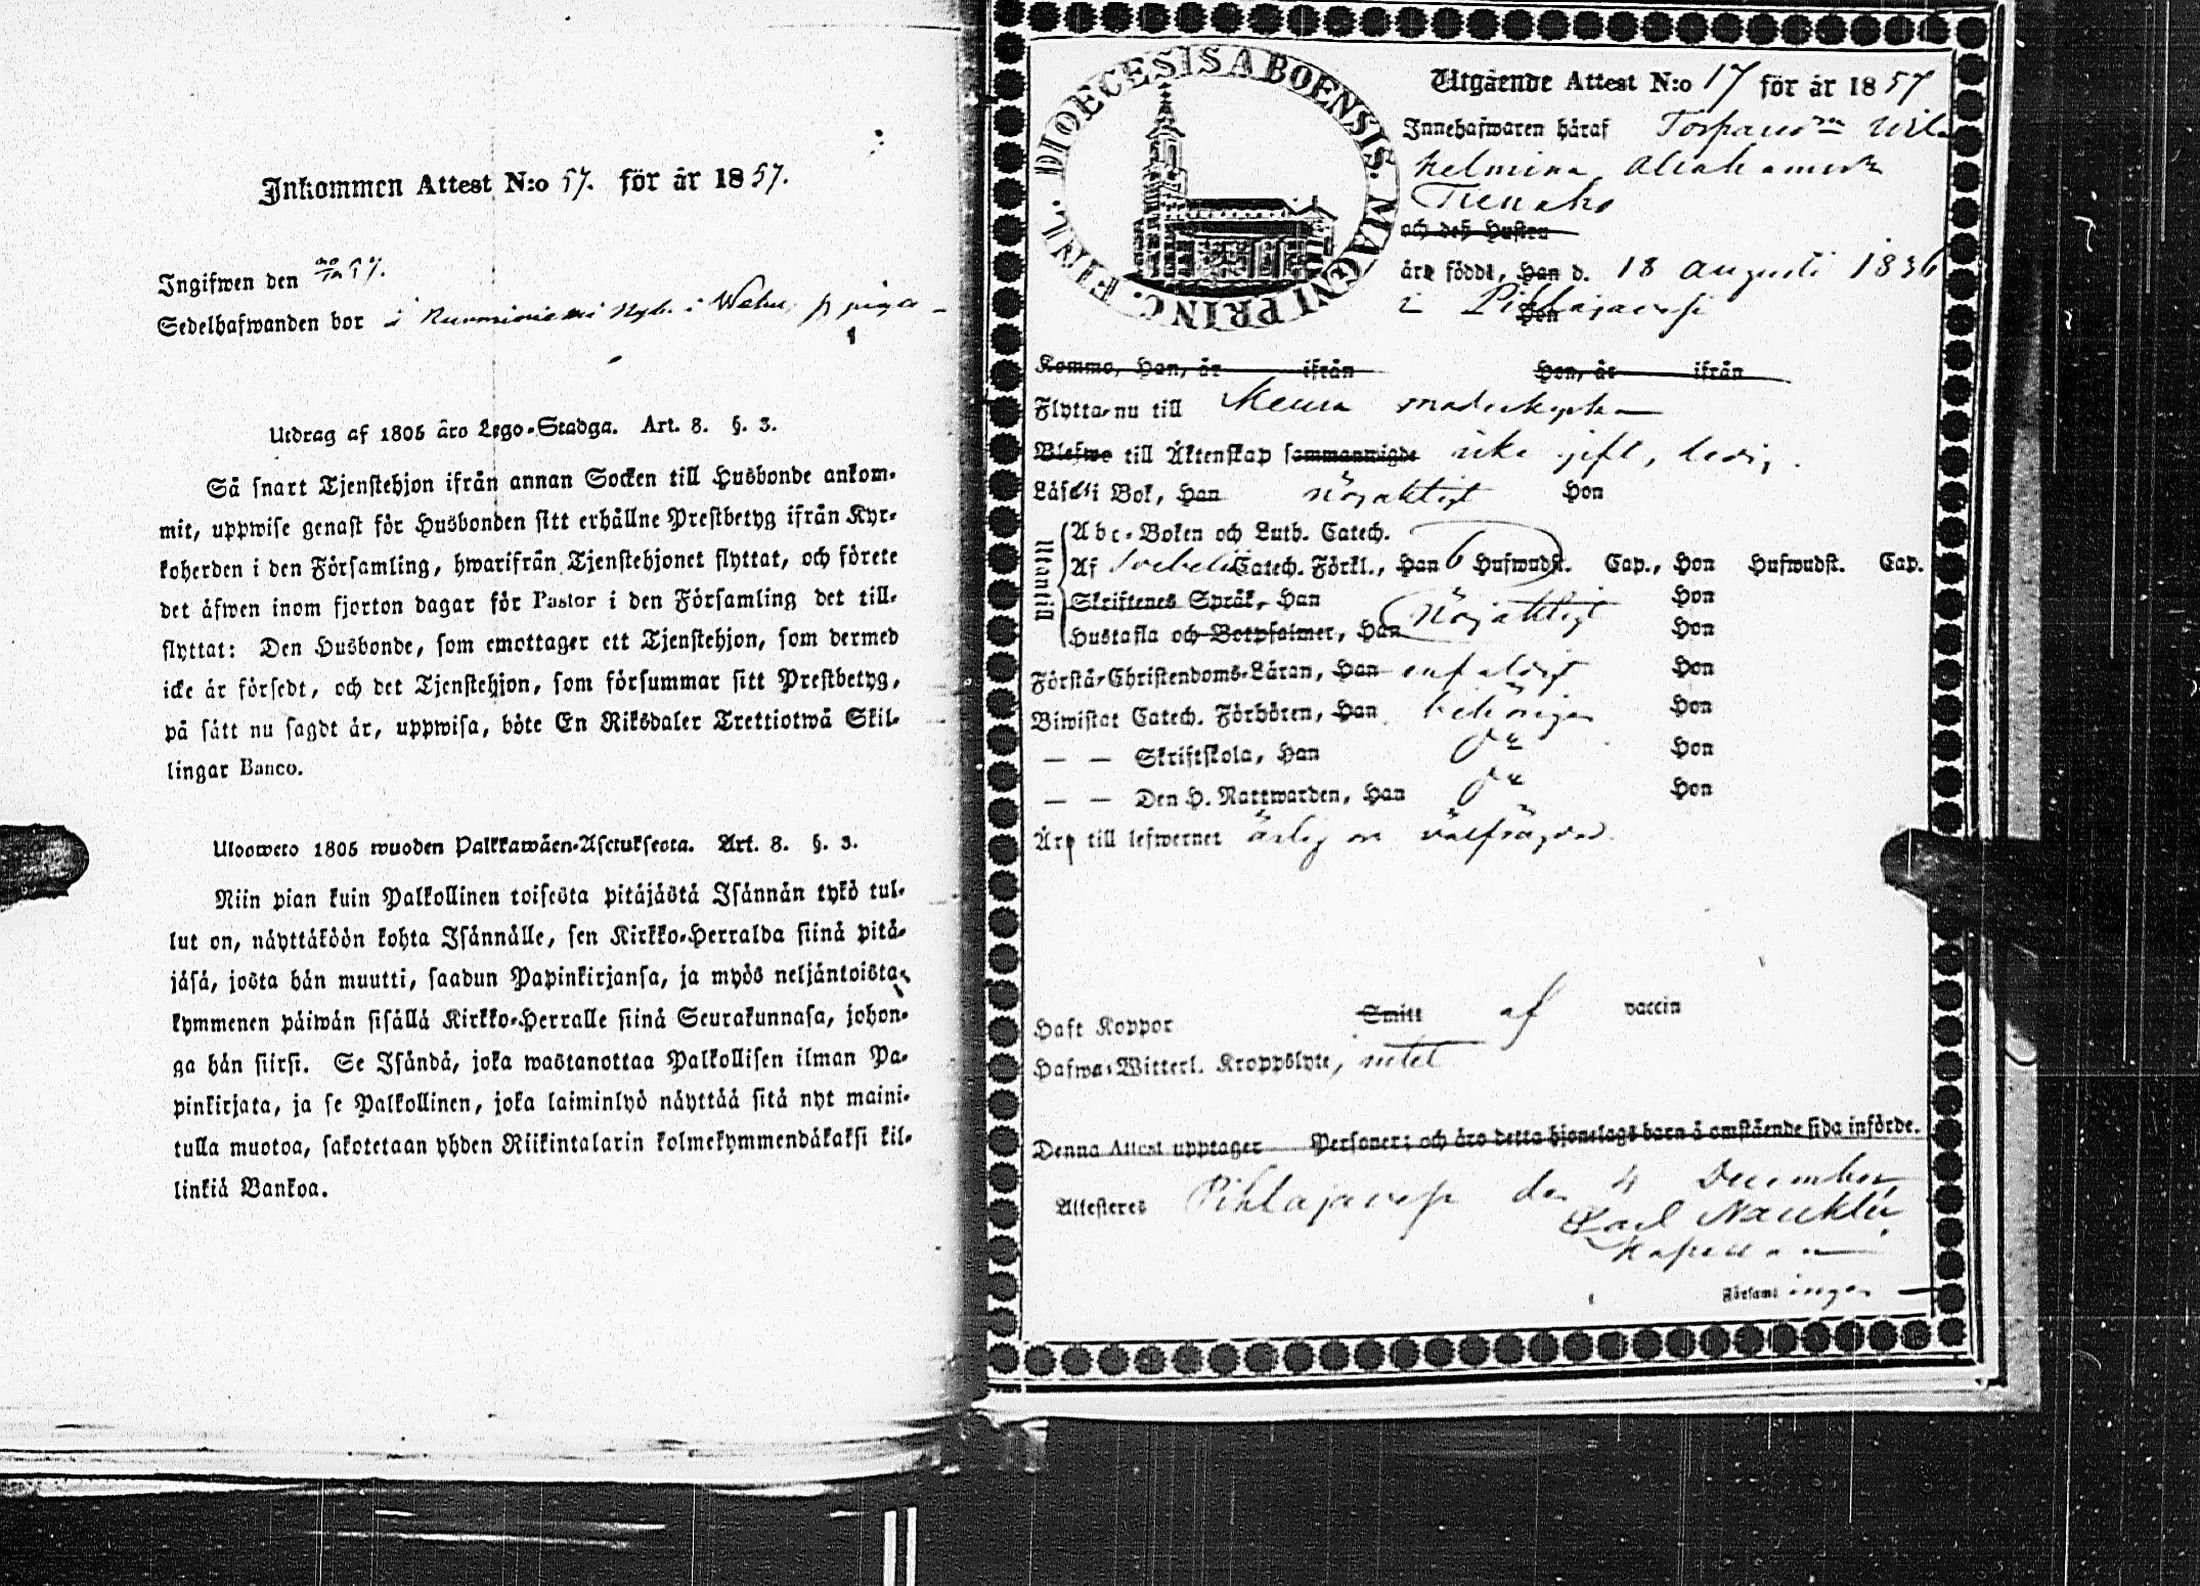 Inkommen Attest N:o 57. för år 1857.
Ingifwen den 57.
Sedelhafwanden bor i i piga
Utdrag af 1805 års Lego-Stadga. Art. 8. §. 3.
Så snart Tjenstehjon ifrån annan Socken till Husbonde ankom-
mit, uppwise genast för Husbonden sitt erhållne Prestbetyg ifrån Kyr-
koherden i den Församling, hwarifrån Tjenstehjonet flyttat, och förete
det äfwen inom fjorton dagar för Pastor i den Församling det till-
flyttat: Den Husbonde, som emottager ett Tjenstehjon, som dermed
icke är försedt, och det Tjenstehjon, som försummar sitt Prestbetyg,
på sätt nu sagdt är, uppwisa, böte En Riksdaler Trettiotwå Skil-
lingar Banco.
Uloosweto 1805 wuoden Palkkawäen-Asetuksesta. Art. 8. §. 3.
Niin pian kuin Palkollinen toisesta pitäjästä Isännän tykö tul-
lut on, näyttäköön kohta Isännälle, sen Kirkko-Herralda siinä pitä-
jäsä, josta hän muutti, saadun Papinkirjansa, ja myös neljäntoista-
kymmenen päiwän sisällä Kirkko-Herralle siinä Seurakunnasa, johon-
ga hän siirsi. Se Isändä, joka wastanottaa Palkollisen ilman Pa-
pinkirjata, ja se Palkollinen, joka laiminlyö näyttää sitä nyt maini-
tulla muotoa, sakotetaan yhden Riikintalarin kolmekymmendäkaksi kil-
linkiä Bankoa.
DIOECESIS ABOENSIS. MAGNI PRINC. FINL.
Utgående Attest N:o 17 för år 1857
Innehafwaren häraf Torpared:r Wil-
helmina Abrahamsdr
och deß Hustru
äro födde, Han d. 18 augusti 1836
i Pihlajavesi
Hon
Kommo, Han, år ifrån Hon, år ifrån
Flytta nu till Keuru moderkyrka
Blefwo till Äktenskap sammanwigde icke gift, ledig.
Läser i Bok, Han nöjaktigt Hon
Utantill
Abc-Boken och Luth. Catech.
Af Svebelii Catech. Förkl., Han 6 Hufwudst. Cap., Hon Hufwudst. Cap.
Skriftenes Språk, Han nöjaktigt Hon
Hustafla och Botpsalmer, Han Hon
Förstå Christendoms-Läran, Han enfaldigt Hon
Biwistat Catech. Förhören, Han behörigen Hon
— — Skriftskola, Han d:o Hon
— — Den H. Nattwarden, Han d:o Hon
Äro till lefwernet ärlig och välfrägdad.
Haft Koppor Smitt af vaccin
Hafwa Witterl. Kroppslyte, intet
Denna Attest upptager Personer; och äro detta hjonelags barn å omstående sida införde.
Attesteres Pihlajavesi den 4 December
Karl Nauklér
Kapellan
Församlingen